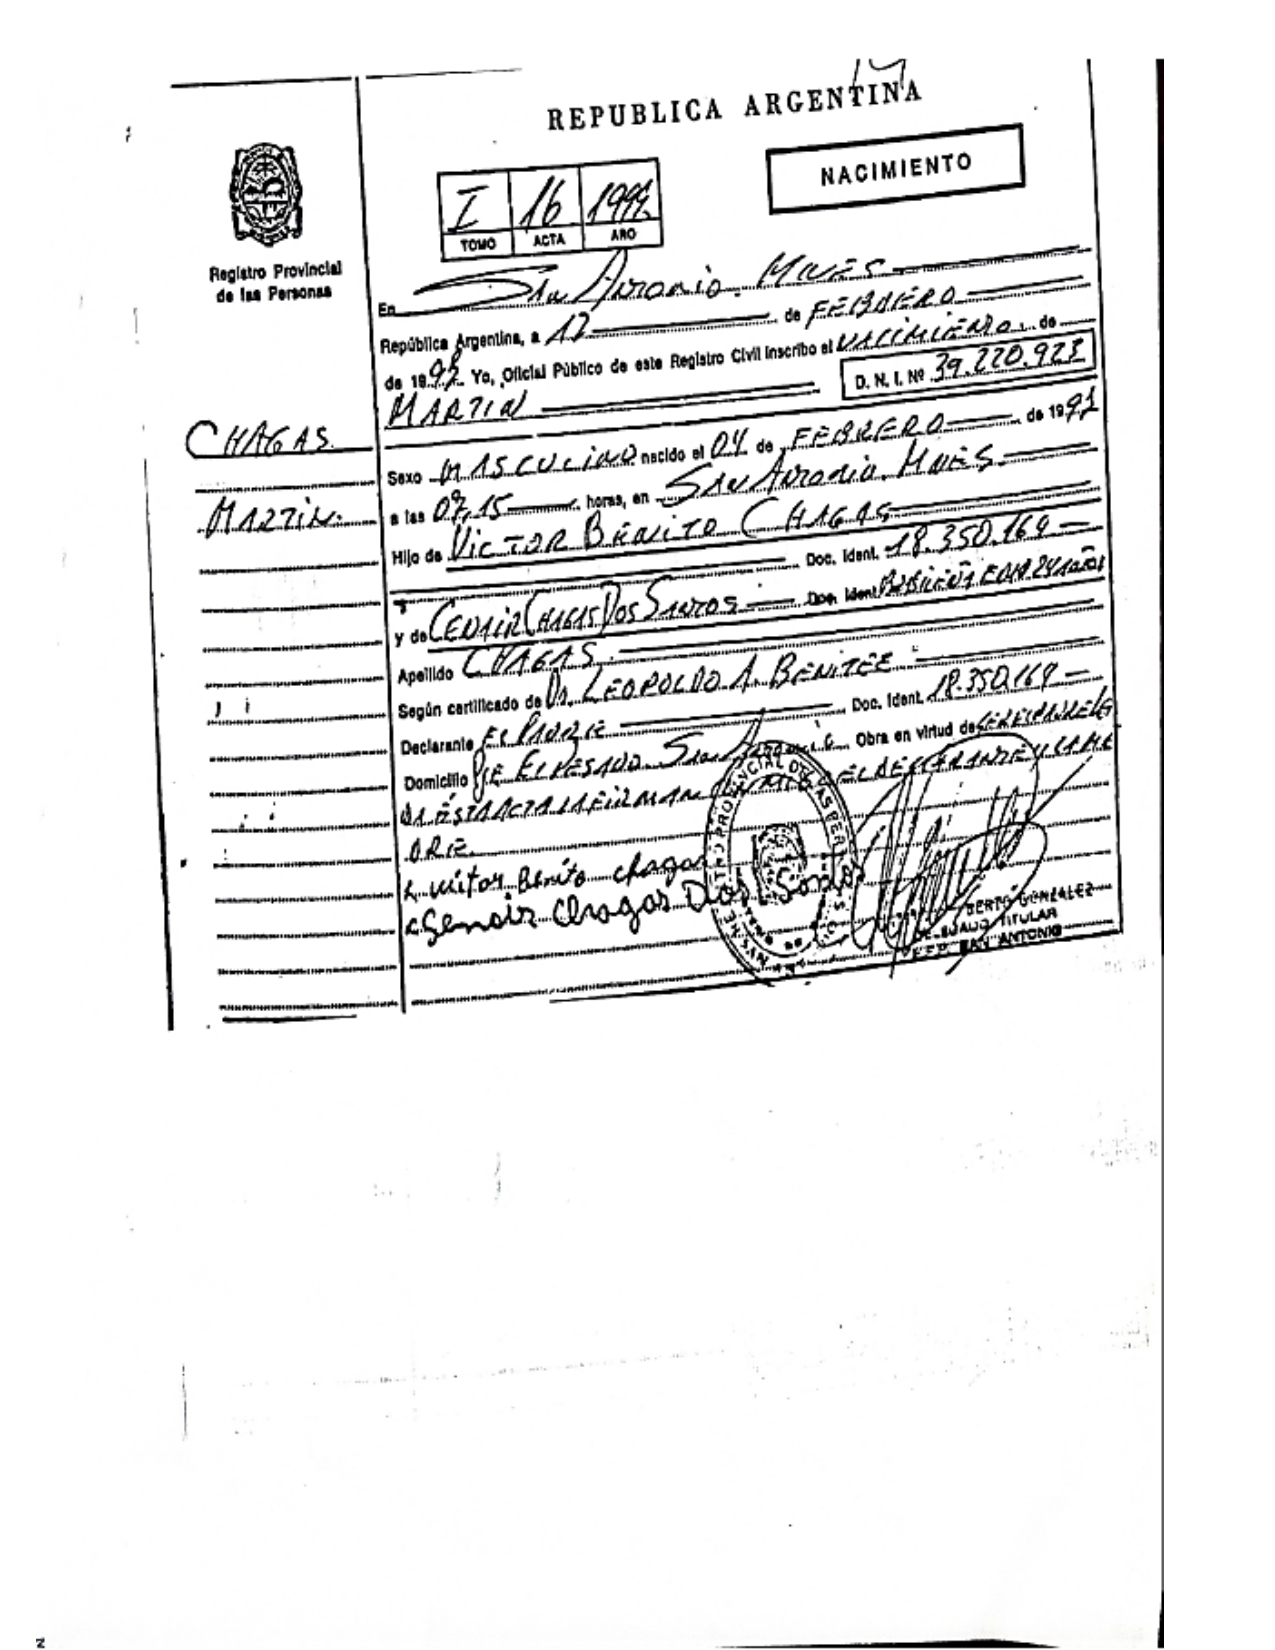 REPUBLICA ARGENTINA
NACIMIENTO
I 16
TOMO ACTA AÑO
Registro Provincial
de las Personas
En San Antonio. Mnes
República Argentina, a 12 de FEBRERO
de 199 Yo, Oficial Público de este Registro Civil inscribo el NACIMIENTO de
MARTIN
D. N. I. Nº 39.220.923
CHAGAS
MARTIN
Sexo MASCULINO nacido el 04 de FEBRERO de 199
a las 07,15 horas, en San Antonio, Mnes
Hijo de VICTOR BENITO CHAGAS
Doc. Ident. 18.350.169
y de CENAIR CHAGAS DOS SANTOS Doc. Ident
Apellido CHAGAS
Según certificado de Dr. LEOPOLDO A. BENITEZ
Declarante EL PADRE Doc. Ident. 18.350.169
Domicilio PJE EL PESADO. San Obra en virtud de
DA ÉSTA ACTA LA FIRMAN EL DECLARANTE Y LA MA
DRE.
Benito chagas
Chagas Dos Santos
GONZALEZ
TITULAR
SAN ANTONIO